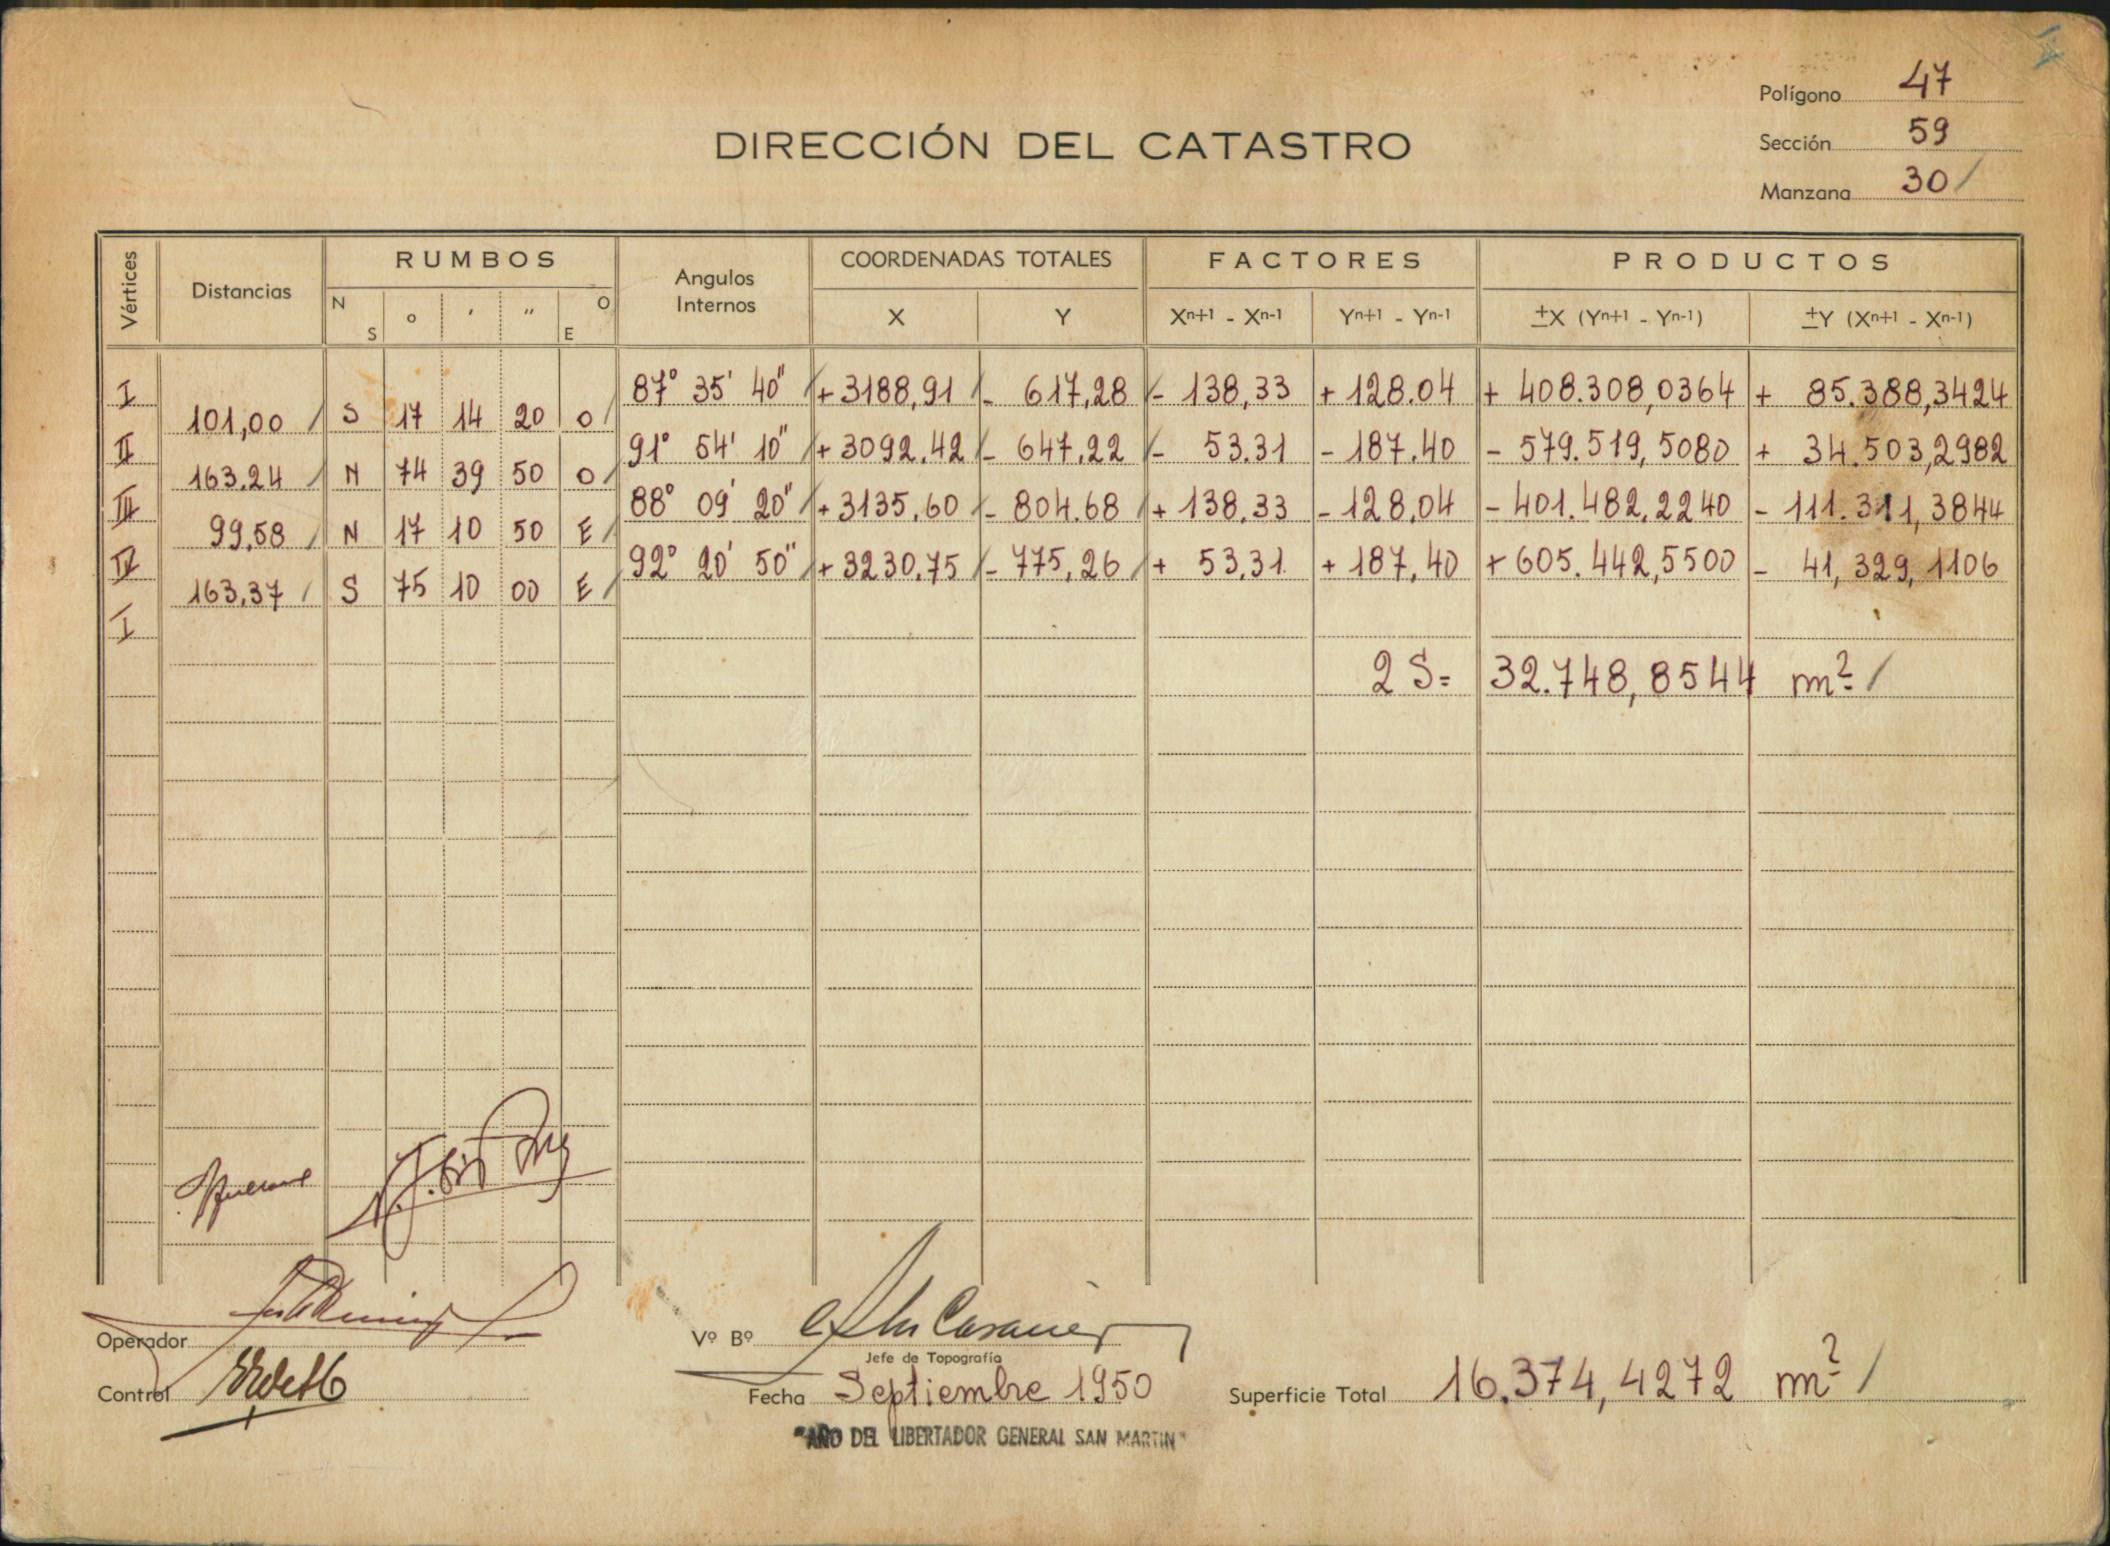 Polígono 47
DIRECCIÓN DEL CATASTRO
Sección 59
Manzana 30 /
Vértices Distancias RUMBOS Angulos Internos COORDENADAS TOTALES FACTORES PRODUCTOS
N S o ' " O E X Y Xn+1 - Xn-1 Yn+1 - Yn-1 ±X (Yn+1 - Yn-1) ±Y (Xn+1 - Xn-1)
I 87° 35' 40" / + 3188,91 / - 617,28 / - 138,33 + 128.04 + 408.308,0364 + 85.388,3424
101,00 / S 17 14 20 O /
II 91° 54' 10" / + 3092.42 / - 647,22 / - 53.31 - 187.40 - 579.519,5080 + 34.503,2982
163.24 / N 74 39 50 O /
III 88° 09' 20" / + 3135,60 / - 804.68 / + 138,33 - 128,04 - 401.482,2240 - 111.311,3844
99,58 / N 17 10 50 E /
IV 92° 20' 50" / + 3230,75 / - 775,26 / + 53,31 + 187,40 + 605.442,5500 - 41,329,1106
163,37 / S 75 10 00 E /
I
2 S= 32.748,8544 m² /
Operador
Vº Bº
Jefe de Topografía
Control
Fecha Septiembre 1950
Superficie Total 16.374,4272 m² /
"AÑO DEL LIBERTADOR GENERAL SAN MARTIN"